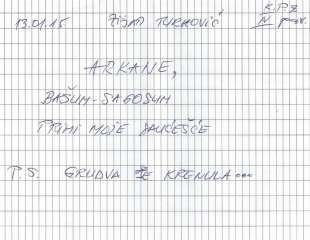 13.01.15 TURKOVIĆ K.P.Z
IV
ARKANE,
BAŠUM-SAGOSUM
PRIMI MOJE SAUČEŠĆE
P.S. GRUDVA JE KRENULA...